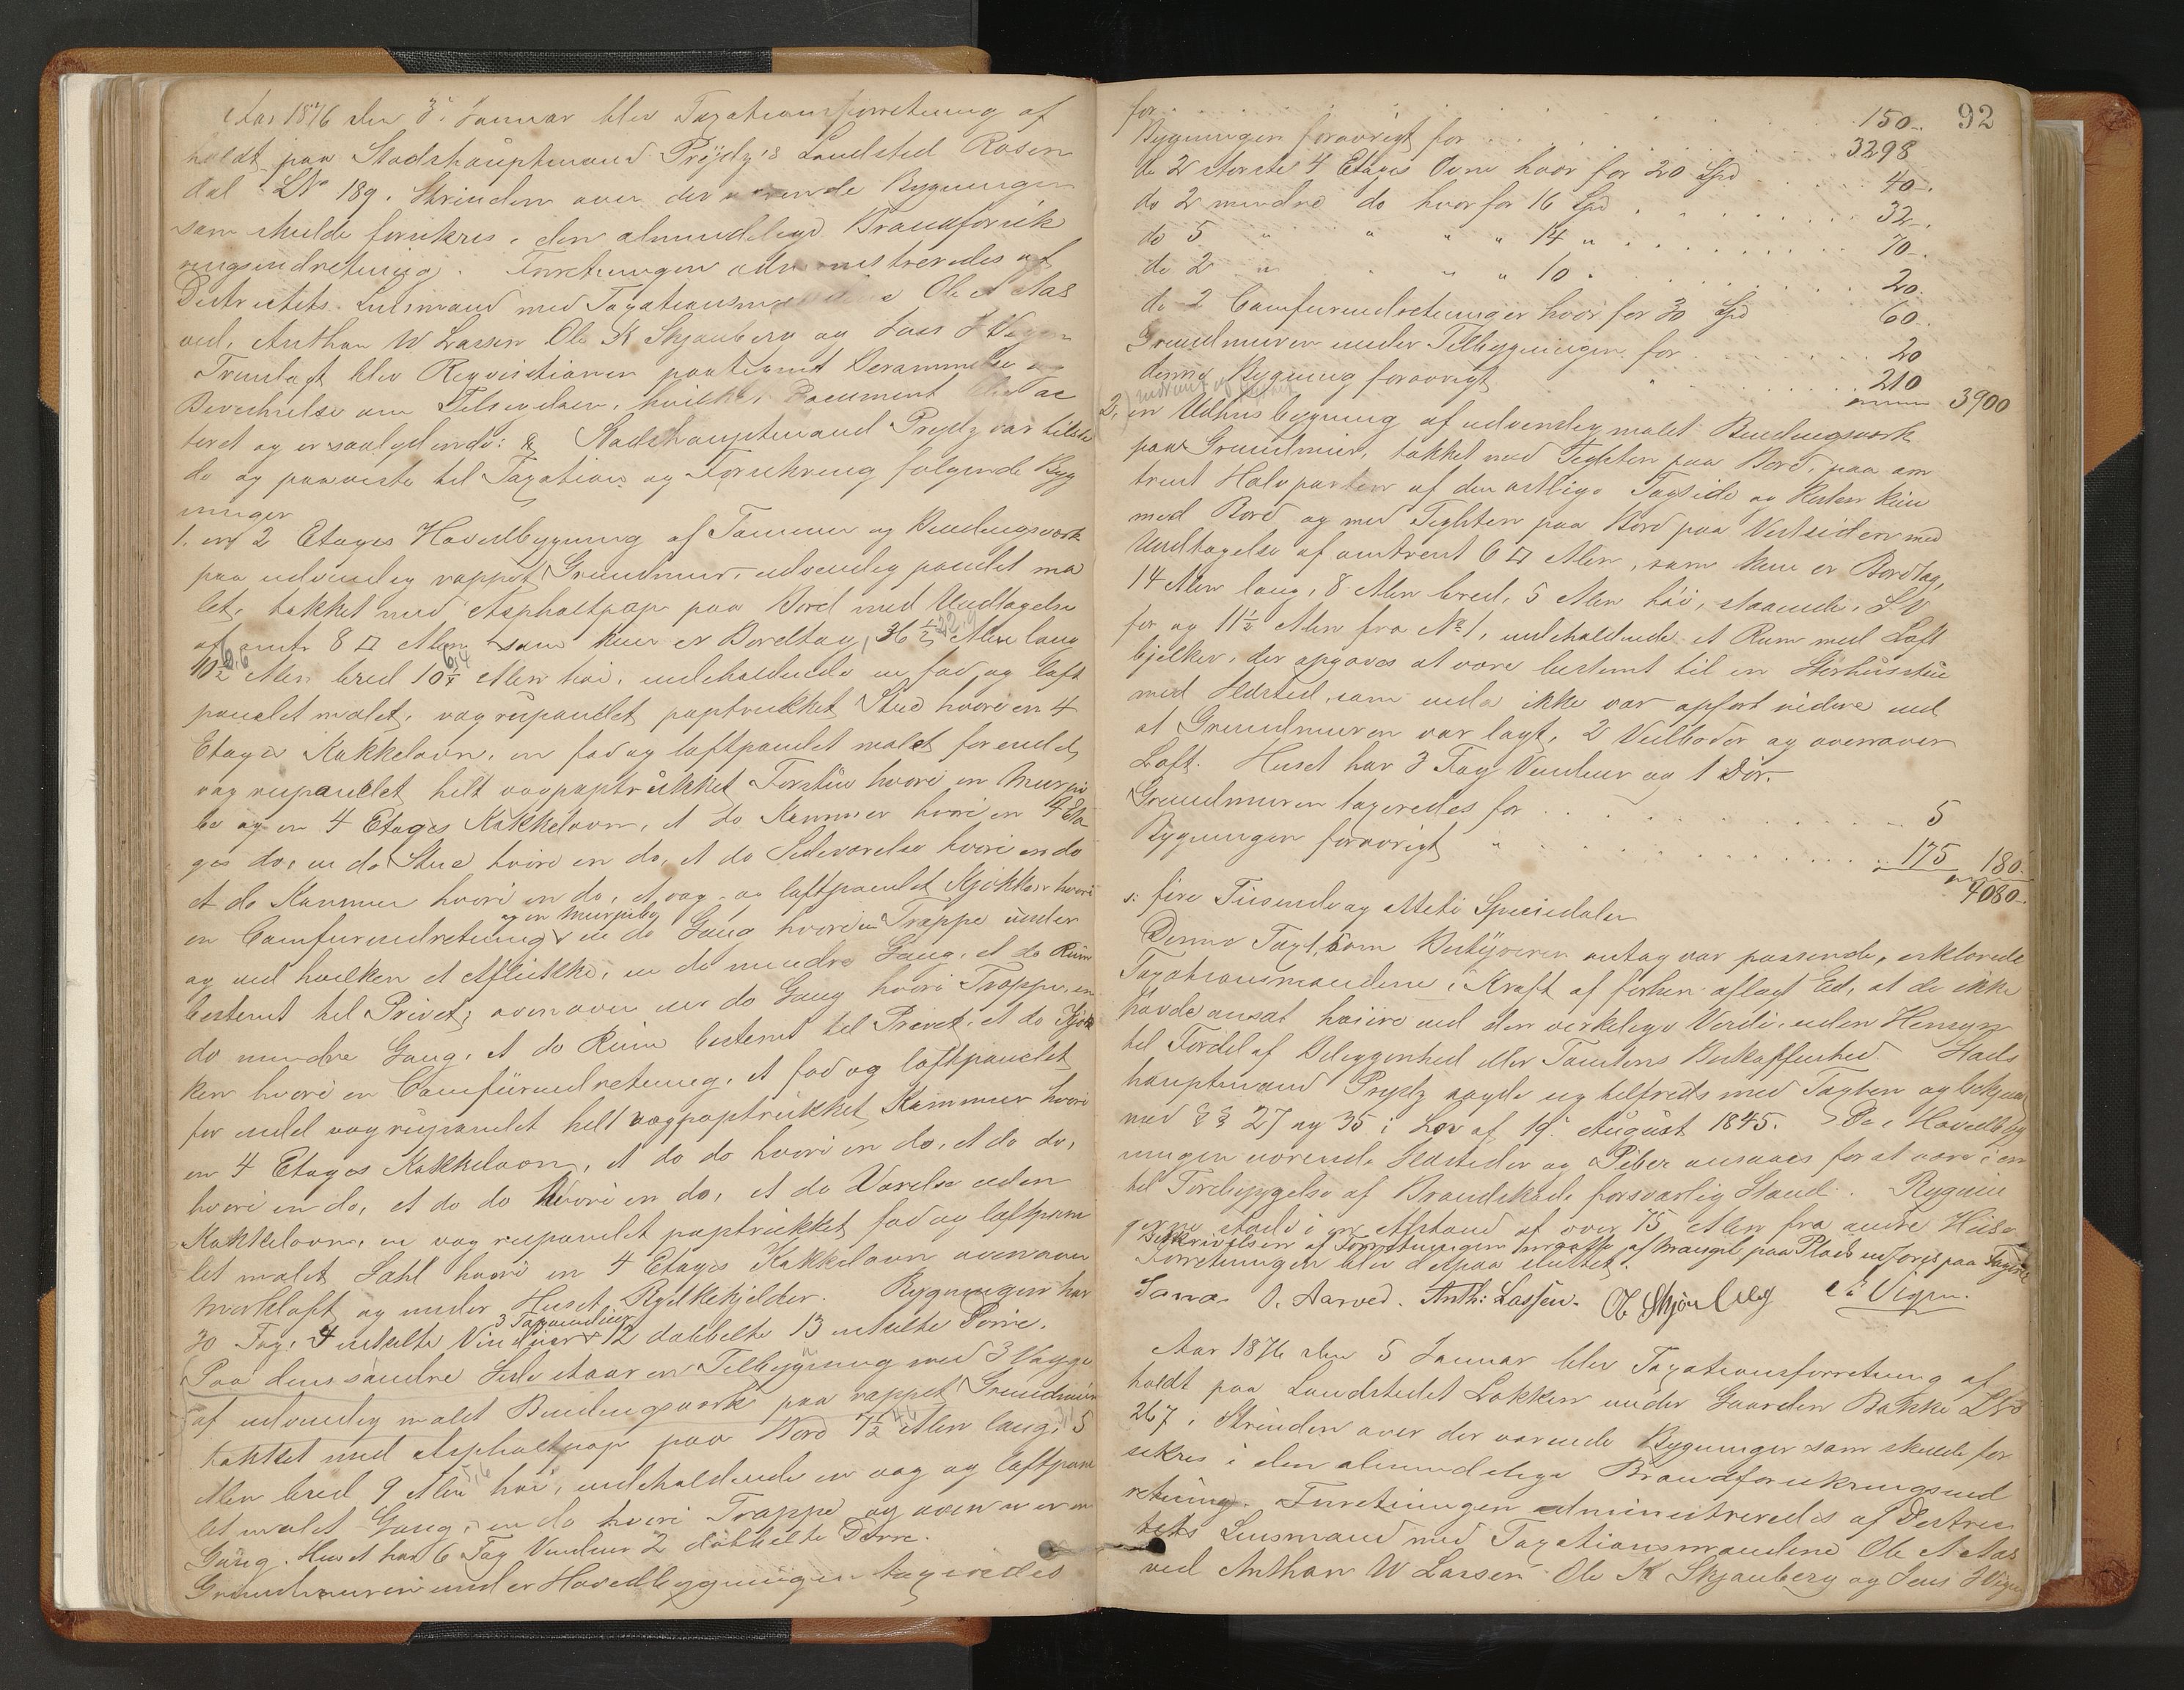 Aar 1876 den 3. Januar blev Taxationsforretning af
holdt paa Stadshauptmand Prÿdz's Landsted Rosen
dal LNo 189 i Strinden over der værende Bygninger
som skulde forsikres i den almindelige Brandforsik
ringsindretning. Forretningen administreredes af
Districtets Lensmand med Taxationsmændene Ole A Aas
ved, Anthon W Lassen Ole K Skjønberg og Jens J Vigen
Fremlagt blev Requisitionen paategnet Berammelse og
Bevidnelse om Tilsigelsen, hvilket Document blev ac
teret og er saalydende: Stadshauptmand Prydz var tilste
de og paaviste til Taxation og Forsikring følgende Byg
ninger
1. en 2 Etages Hovedbygning af Tømmer og Bindingsværk
paa udvendig rappet Grundmur, udvendig panelt ma
let, tækket med Asphaltpap paa Bord med Undtagelse
af omtr 8 □ Alen som kun er Bordtag, 36 ½ Alen lang
10½ Alen bred 10¼ Alen høi, indeholdende en fod og loft
panelet malet, væg rupanelet paptrukket Stue hvori en 4
Etages Kakkelovn, en fod og loftpanelet malet forendel
væg rupanelet helt vægpaptrukket Forstue hvori en Murpi
be og en 4 Etages Kakkelovn, et do Kammer hvori en 4 Eta
ges do, en do Stue hvori en do, et do Sideværelse hvori en do
et do Kammer hvori en do, et væg- og loftpanelet Kjøkken hvori
en Comfurindretning og en Murpibe, en do Gang hvori en Trappe under
og ved hvilken et Aflukke, en do mindre Gang, et do Rum
bestemt til Privet; ovenover en do Gang hvori Trappe, en
do mindre Gang, et do Rum bestemt til Privet, et do Kjøk
ken hvori en Comfürindretning, et fod og loftpanelet
for endel vægrupanelet helt vægpaptrukket Kammer hvori
en 4 Etages Kakkelovn, et do do hvori en do, et do do,
hvori en do, et do do hvori en do, et do Værelse uden
Kakkelovn, en væg rupanelet paptrukket fod og loftpane
let malet Sahl hvori en 4 Etages Kakkelovn ovenover
Mørkloft og under Huset Rullekjelder. Bygningen har
30 Fag, 4 enkelte Vinduer 12 dobbelte 13 enkelte Dørre.
Paa dens søndre Side staar en Tilbygning med 3 Vægge
af udvendig malet Bindingsværk paa rappet Grundmur
tækket med Asphaltpap paa Bord 7½ Alen lang, 5
Alen bred 9 Alen høi, indeholdende en væg og loftpane
let malet Gang, en do hvori Trappe og oven over en
Gang. Huset har 6 Fag Vinduer 2 dobbelte Dørre.
Grundmuren under Hovedbygningen taxeredes
92
for . . . 150.
Bygningen forøvrigt for . . . 3298
do 2 største 4 Etages Ovne hver for 20 Spd . . . 40.
do 2 mindre do hver for 16 Spd . . . 32.
do 5 " " " " 14 " . . . 70.
do 2 " " " 10 . . . 20.
do 2 Comfurindretninger hver for 30 Spd . . . 60.
Grundmuren under Tilbygningen for . . . 20
denne Bygning forøvrigt " . . . 210 3900
2. en Udhusbygning af udvendig malet Bindingsværk
paa Grundmur, tækket med Teglsten paa Bord, paa om
trent Halvparten af den østlige Tagside og Resten kun
med Bord og med Teglsten paa Bord paa Vestsiden med
Undtagelse af omtrent 6 □ Alen, som kun er Bordtag,
14 Alen lang, 8 Alen bred, 5 Alen høi, staaende i SV
for og 11½ Alen fra No 1, indeholdende et Rum med Loft
bjelker, der opgaves at være bestemt til en
med Ildsted, som enda ikke var opført videre end
at Grundmuren var lagt, 2 Vedboder og ovenover
Loft. Huset har 3 Fag Vinduer og 1 Dör.
Grundmuren taxeredes for . . . 5
Bygningen forøvrigt " . . . 175 180.
4080.
s: fire Tusende og Otteti Speciedaler
Denne Taxt, som Bestÿreren antog var passende, erklærede
Taxationsmændene i Kraft af forhen aflagt Ed, at de ikke
havde ansat høiere end den virkelige Værdi, uden Hensyn
til Fordel af Beliggenhed eller Tomtens Beskaffenhed. Stads
hauptmand Prydz sagde sig tilfreds med Taxten og bekjendt
med §§ 27 og 35 i Lov af 19 August 1845. De i Hovedbyg
ningen værende Ildsteder og Piber ansaaes for at være i en
til Forebyggelse af Brandskade forsvarlig Stand. Bygnin
gerne stod i en Afstand af over 75 Alen fra andre Huse
Beskrivelsen af Forretningen af Mangel paa Plads indføres paa
Forretningen blev derpaa sluttet.
O. Aarved. Anth: Lassen. Ole Skjønberg J. Vigen.
Aar 1876 den 5 Januar blev Taxationsforretning af
holdt paa Landstedet Løkken under Gaarden Bakke LNo
267 i Strinden over der værende Bygninger som skulde for
sikres i den almindelige Brandforsikringsind
retning. Forretningen administreredes af Distric
tets Lensmand med Taxationsmændene Ole A Aas
ved Anthon W Lassen Ole K Skjønberg og Jens J Vigen